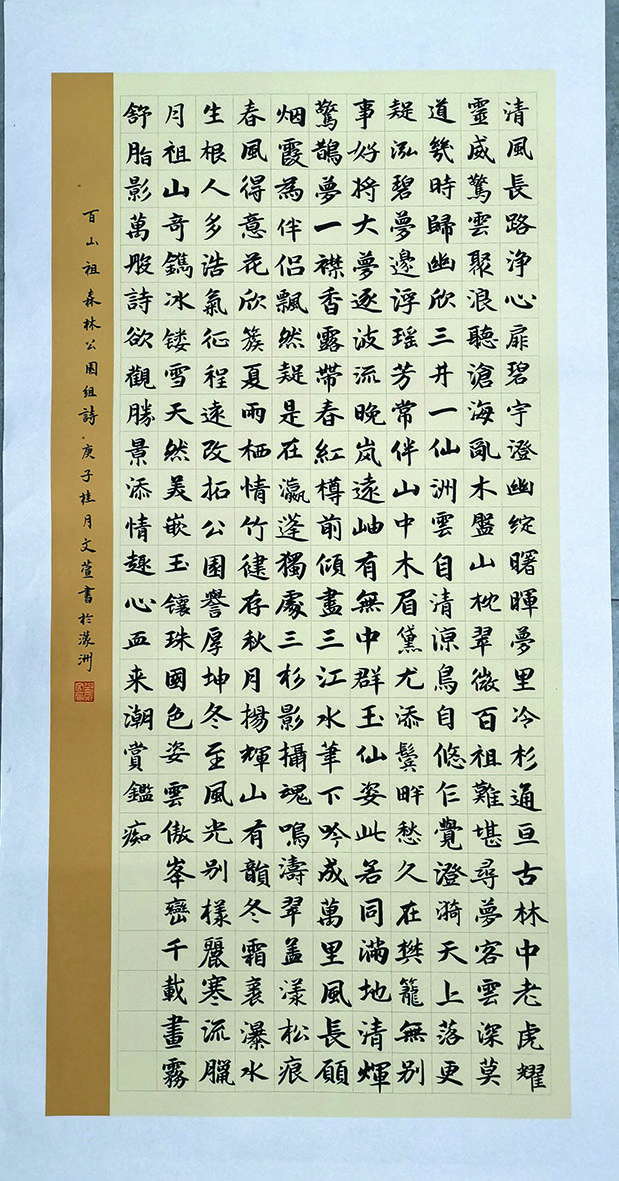 清風長路淨心扉碧宇澄幽綻曙暉夢里冷杉通亘古林中老虎耀
靈威驚雲聚浪聽滄海亂木盤山枕翠微百祖難堪尋夢客雲深莫
道幾時歸幽欣三井一仙洲雲自清涼鳥自悠仁覺澄漪天上落更
疑泓碧夢邊浮瑤芳常伴山中木眉黛尤添鬓畔愁久在樊籠無別
事好將大夢逐波流晚嵐遠岫有無中群玉仙姿此若同滿地清輝
驚鵲夢一襟香露帶春紅樽前傾盡三江水筆下吟成萬里風長願
烟霞為伴侶飄然疑是在瀛蓬獨處三杉影攝魂鳴濤翠蓋漾松痕
春風得意花欣簇夏雨栖情竹徤存秋月揚輝山有韻冬霜裹瀑水
生根人多浩氣征程遠改拓公園譽厚坤冬至風光別樣麗寒流臘
月祖山奇鐫冰镂雪天然美嵌玉鑲珠國色姿雲傲峯巒千載畫霧
舒脂影萬般詩欲觀勝景添情趣心血来潮賞鑑痴
百山祖森林公園組詩 庚子桂月文萱書於濛洲